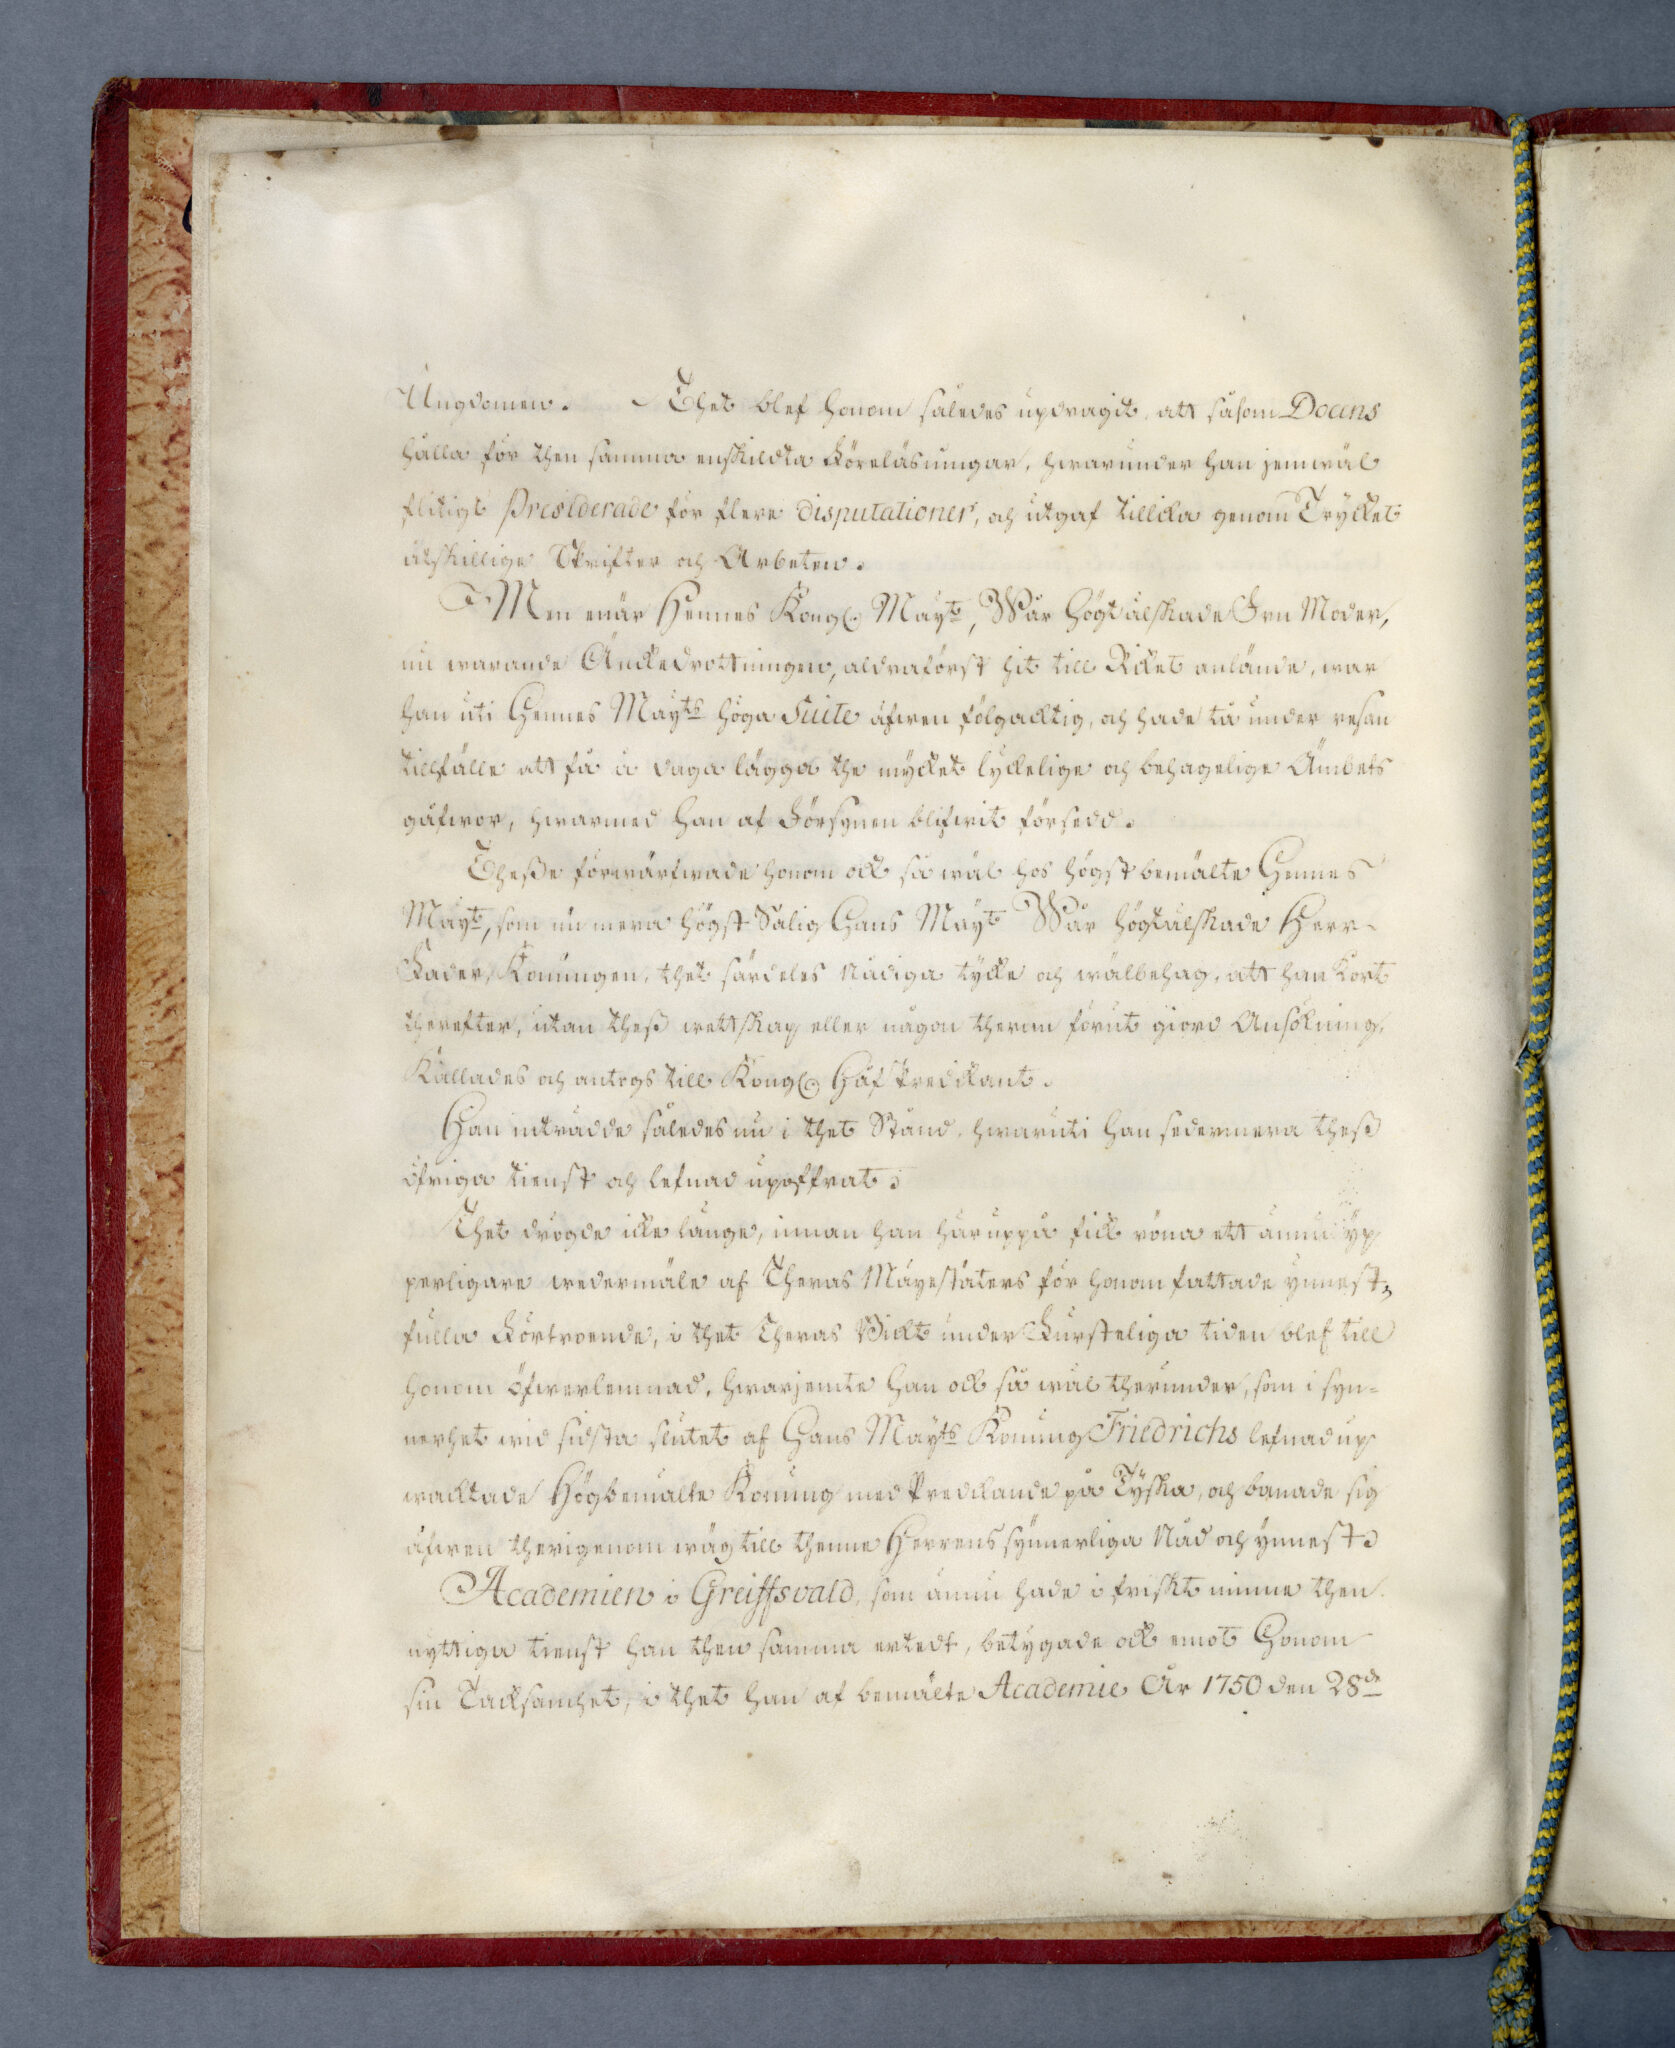 Ungdomen. Thet blef honom således updragit, att såsom Docens
hålla för then samma enskildta Föreläsningar, hwarunder han jemwäl
flitigt Presiderade för flere disputationer, och utgaf tillika genom Trycket
åtskillige Skrifter och Arbeten.
Men enär Hennes Kongl. Mayt, Wår Högtälskade Fru Moder,
nu warande Änckedrottningen, aldraförst hit till Riket anlände, war
han uti Hennes Mayts höga Suite äfwen följacktig, och hade tå under resan
tillfälle att få å daga lägga the mycket lyckelige och behagelige Ämbets
gåfwor, hwarmed Han af Försynen blifwit försedd.
Theße förwärfwade honom ock så wäl hos högst bemälte Hennes
Mayt, som nu mera Högst Salig Hans Mayt Wår Högtälskade Herr
Fader, Konungen, thet särdeles nådiga tycke och wälbehag, att han kort
therefter, utan theß wettskap eller någon therom förut giord Ansökning,
Kallades och antogs till Kongl. Håf Predikant.
Han inträdde således nu i thet Stånd, hwaruti han sedermera theß
öfriga tienst och lefnad upoffrat.
Thet drögde icke länge, innan han häruppå fick röna ett ännu yp
perligare wedermäle af Theras Mayestäters för honom fattade ynnest-
fulla Förtroende, i thet Theras Bickt under Fursteliga tiden blef till
honom öfwerlemnad, hwarjemte han ock så wäl therunder, som i syn-
nerhet wid sidsta slutet af Hans Mayts Konung Friedrichs lefnad up
wacktade Högbemälte Konung med Predikande på Tyska, och banade sig
äfwen therigenom wäg till thenne Herrens synnerliga Nåd och ynnest.
Academien i Greiffsvald, som ännu hade i friskt minne then
nyttiga tienst han then samma ertedt, betygade ock emot Honom
sin Tacksamhet, i thet han af bemälte Academie År 1750 den 28de